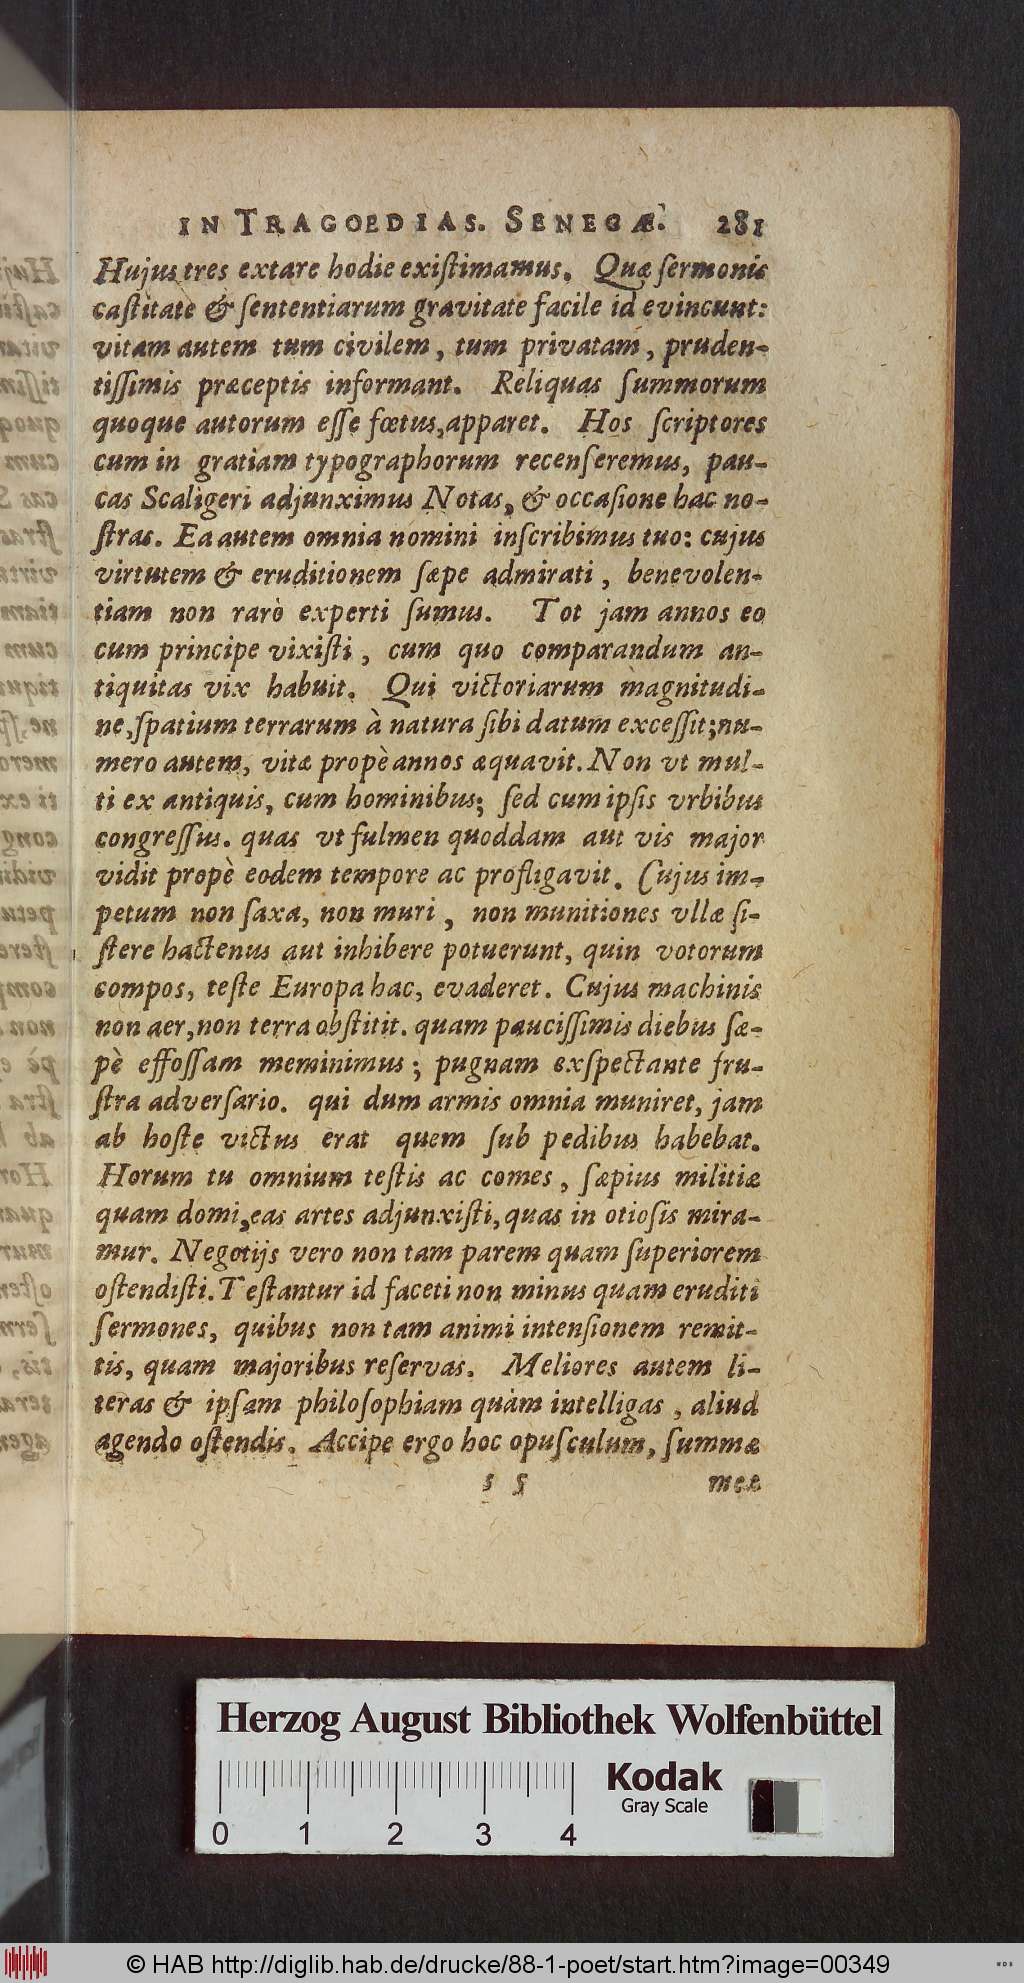 IN TRAGOEDIAS. SENECÆ. 281
Hujus tres extare hodie existimamus. Quæ sermonis
castitate & sententiarum gravitate facile id evincunt:
vitam autem tum civilem, tum privatam, pruden-
tissimis præceptis informant. Reliquas summorum
quoque autorum esse fœtus, apparet. Hos scriptores
cum in gratiam typographorum recenseremus, pau-
cas Scaligeri adjunximus Notas, & occasione hac no-
stras. Ea autem omnia nomini inscribimus tuo: cujus
virtutem & eruditionem sæpe admirati, benevolen-
tiam non rarò experti sumus. Tot jam annos eo
cum principe vixisti, cum quo comparandum an-
tiquitas vix habuit. Qui victoriarum magnitudi-
ne, spatium terrarum à natura sibi datum excessit; nu-
mero autem, vitæ propè annos æquavit. Non vt mul-
ti ex antiquis, cum hominibus; sed cum ipsis vrbibus
congressus. quas vt fulmen quoddam aut vis major
vidit propè eodem tempore ac profligavit. Cujus im-
petum non saxa, non muri, non munitiones vllæ si-
stere hactenus aut inhibere potuerunt, quin votorum
compos, teste Europa hac, evaderet. Cujus machinis
non aer, non terra obstitit. quam paucissimis diebus sæ-
pè effossam meminimus; pugnam exspectante fru-
stra adversario. qui dum armis omnia muniret, jam
ab hoste victus erat quem sub pedibus habebat.
Horum tu omnium testis ac comes, sæpius militiæ
quam domi, eas artes adjunxisti, quas in otiosis mira-
mur. Negotijs vero non tam parem quam superiorem
ostendisti. Testantur id faceti non minus quam eruditi
sermones, quibus non tam animi intensionem remit-
tis, quam majoribus reservas. Meliores autem li-
teras & ipsam philosophiam quàm intelligas, aliud
agendo ostendis. Accipe ergo hoc opusculum, summæ
s 5 meæ
Herzog August Bibliothek Wolfenbüttel
Kodak
Gray Scale
0 1 2 3 4
© HAB http://diglib.hab.de/drucke/88-1-poet/start.htm?image=00349